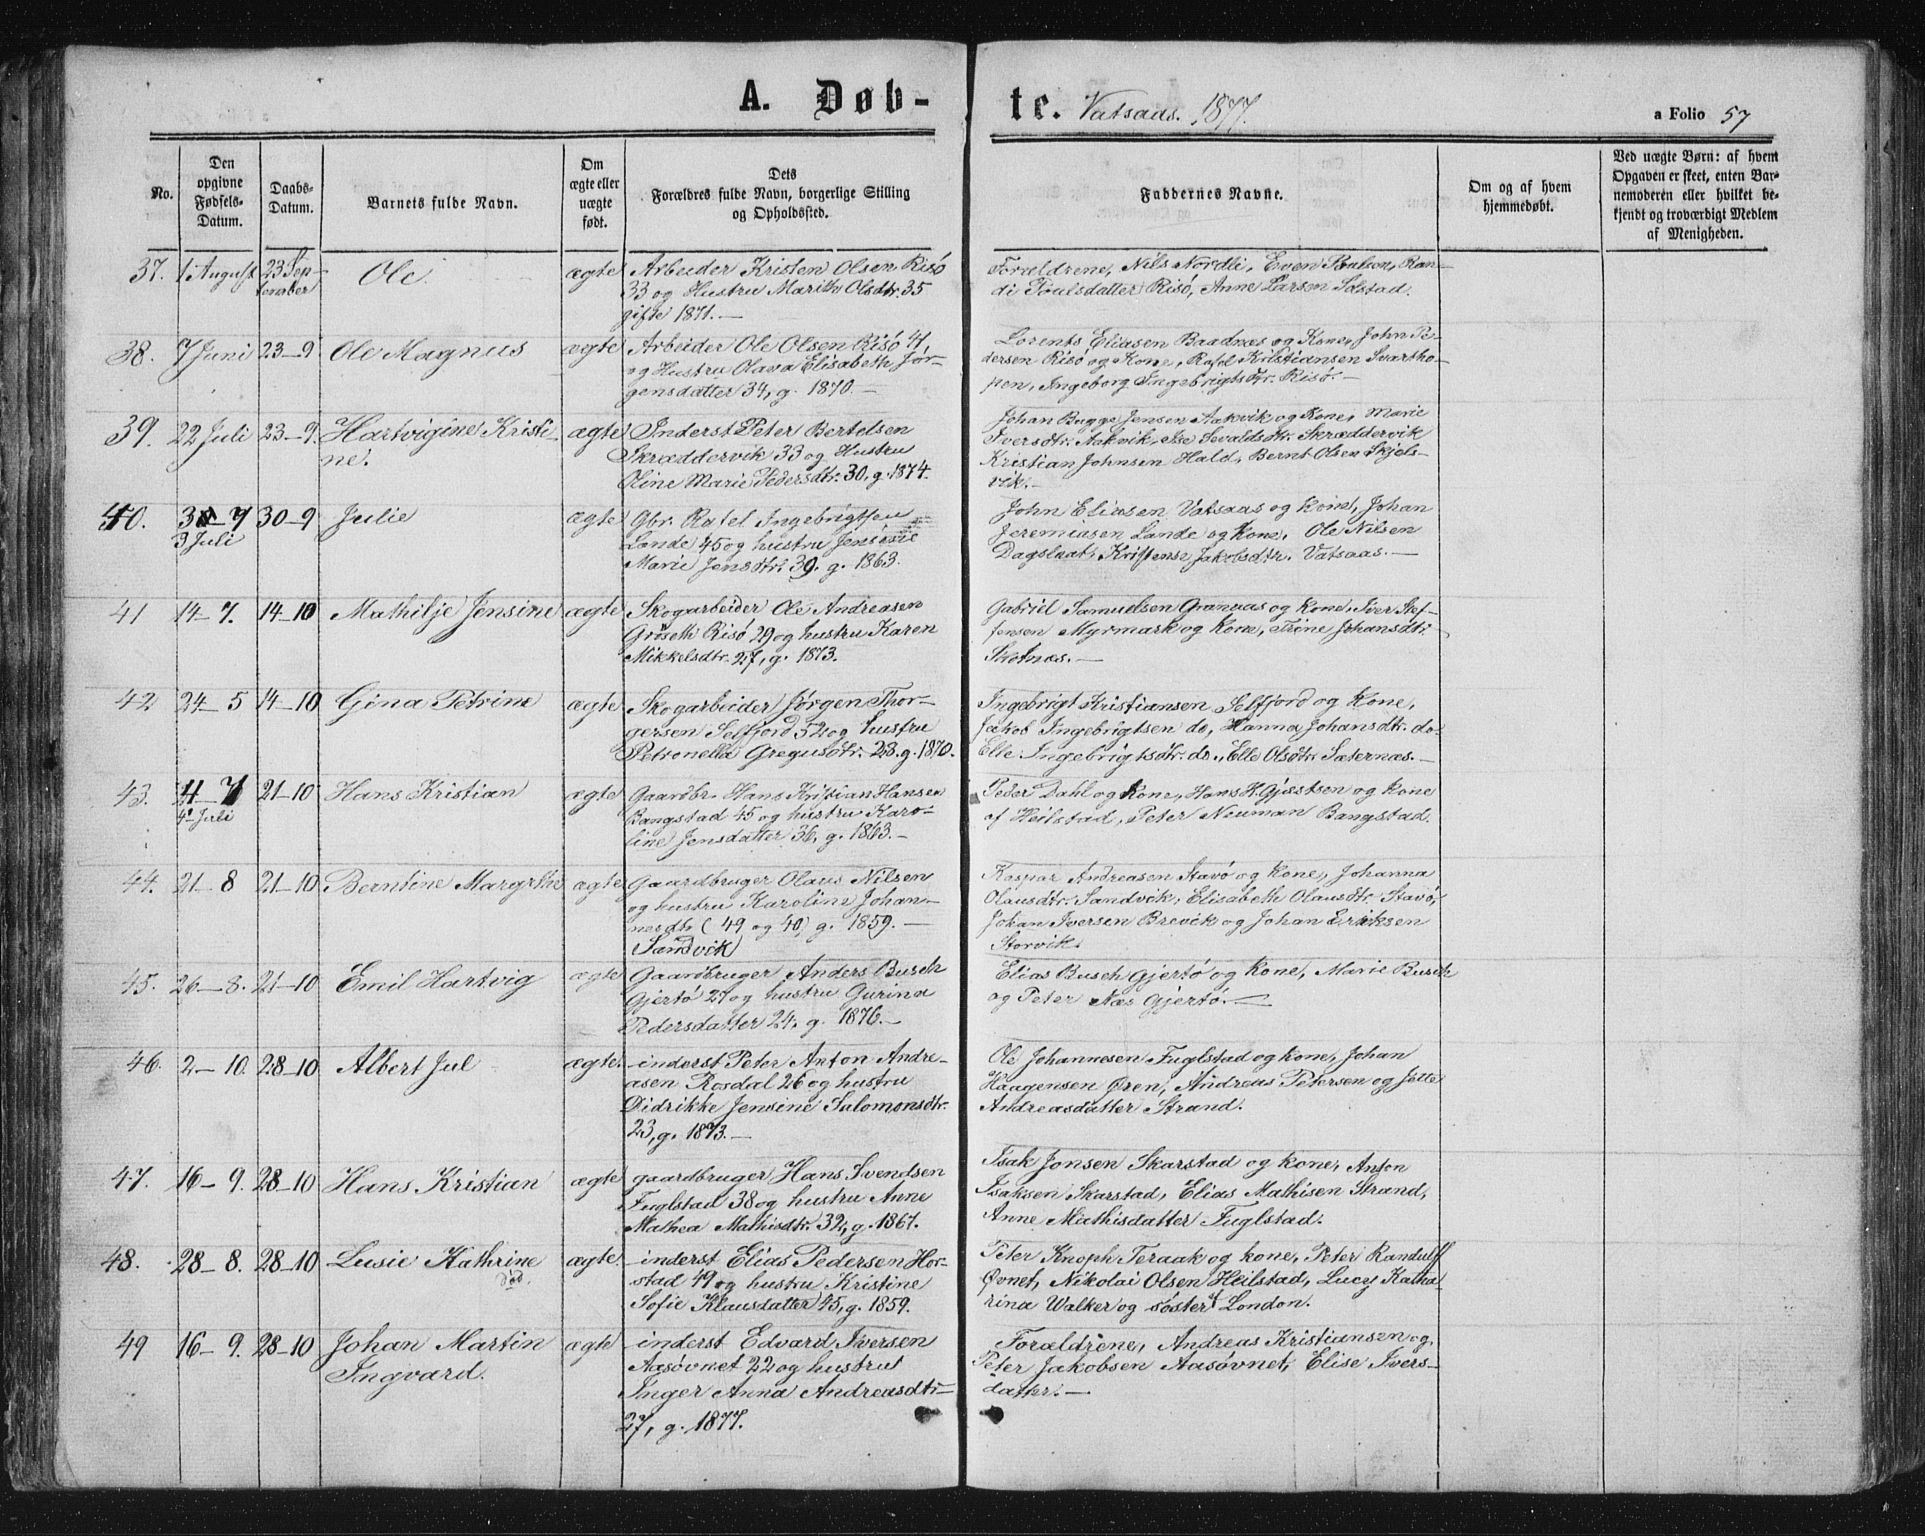 A. Døb- te. Vatsaas. 1877. a Folio 57
No.
Den opgivne Fødsels-Datum.
Daabs-Datum.
Barnets fulde Navn.
Om ægte eller uægte født.
Dets Forældres fulde Navn, borgerlige Stilling og Opholdssted.
Faddernes Navne.
Om og af hvem hjemmedøbt.
Ved uægte Børn: af hvem Opgaven er skeet, enten Barnemoderen eller hvilket bekjendt og troværdigt Medlem af Menigheden.
37. 1 August 23 September Ole. ægte Arbeider Kristen Olsen Risö
33 og Hustru Marith Olsdtr. 35
gifte 1871. —
Forældrene, Nils Nordli, Even Poulsen, Ran-
di Poulsdatter Risö, Anne Larsen Solstad.
38. 7 Juni 23-9 Ole Magnus ægte Arbeider Ole Olsen Risö 41,
og Hustru Olava Elisabeth Jör-
gensdatter 34, g. 1870. —
Lorents Eliasen Baadnæs og Kone, John Pe-
dersen Risö og Kone, Kristiansen Svartho-
pen, Ingeborg Ingebrigtsdtr. Risö. —
39. 22 Juli 23-9. Hartvigine Kristi-
ne. ægte Inderst Peter Bertelsen
Skræddervik 33 og Hustru
Oline Marie Pedersdtr. 30, g. 1874.
Johan Bugge Jensen Aakvik og Kone, Marie
Iversdtr. Aakvik, Sevaldsdtr. Skræddervik
Kristian Johnsen Hald, Bernt Olsen Skjels-
vik. —
40. 3-7
3 Juli 30-9 Julie ægte Gbr. Ingebrigtsen
Lande 45 og hustru
Marie Jensdtr. 39. g. 1863.
John Eliasen Vatsaas og Kone, Johan
Jeremiasen Lande og Kone, Ole Nilsen
Dagslaat, Kristense Jakobsdtr. Vatsaas. —
41 14-7. 14-10 Mathilje Jensine ægte Skogarbeider Ole Andreasen
Grösetli Risö 29 og hustru Karen
Mikkelsdtr. 27, g. 1873.
Gabriel Samuelsen Grannæs og Kone, Iver Stef-
fensen Myrmark og Kone, Trine Johansdtr.
Skotnæs. —
42 24-5 14-10 Gina Petrine ægte Skogarbeider Jørgen Thor-
gersen Selfjord 52 og hustru
Petronella Gregusdtr. 28. g. 1870.
Ingebrigt Kristiansen Selfjord og Kone,
Jakob Ingebrigtsen do, Hanna Johansdtr. do
Elle Ingebrigtsdtr. do., Elle Olsdtr. Sæternæs. —
43. 4-7
4de Juli 21-10 Hans Kristian ægte Gaardbr. Hans Kristian Hansen
Bangstad 45 og hustru Karo-
line Jensdatter 36, g. 1863. —
Peder Dahl og Kone, Hans H. Gjæstsen og kone
af Heilstad, Peter Neuman Bangstad.
44. 21-8 21-10 Berntine Margrthe ægte Gaardbruger Olaus Nilsen
og hustru Karoline Johan-
nesdtr (49 og 40) g. 1859. —
Sandvik
Kaspar Andreasen Stavö og kone, Johanna
Olausdtr. Sandvik, Elisabeth Olausdtr. Stavö,
Johan Iversen Brevik og Johan Eriksen
Storvik.
45. 26-8. 21-10 Emil Hartvig ægte Gaardbruger Anders Busch
Gjertö 27 og hustru Gurina
Pedersdatter 24, g. 1876. —
Elias Busch Gjertö og kone, Marie Busch
og Peter Næs Gjertö. —
46. 2-10. 28-10 Albert Jul ægte. inderst Peter Anton Andre-
asen Rosdal 26 og hustru
Didrikke Jensine Salomonsdtr.
23, g. 1873. —
Ole Johannesen Fuglstad og kone, Johan
Haagensen Øren, Andreas Petersen og Jette
Andreasdatter Strand.
47. 16-9. 28-10 Hans Kristian ægte. gaardbruger Hans Svendsen
Fuglstad 38 og hustru Anne
Mathea Mathisdtr. 32, g. 1867.
Isak Jonsen Skarstad og kone, Anton
Isaksen Skarstad, Elias Mathisen Strand,
Anne Mathisdatter Fuglstad.
48. 28-8. 28-10 Lusie Kathrine
død. ægte. inderst Elias Pedersen Hor-
stad 49 og hustru Kristine
Sofie Klausdatter 45, g. 1859.
Peter Knoph Teraak og kone, Peter Randulff
Øvnet, Nikolai Olsen Heilstad, Lucy Katha
rina Walker og søster af London.
49 16-9. 28-10 Johan Martin
Ingvard. ægte inderst Edvard Iversen
Aasövnet 22 og hustru
Inger Anna Andreasdtr.
27, g. 1877.
Forældrene, Andreas Kristiansen og
Peter Jakobsen Aasövnet, Elise Ivers-
datter. —